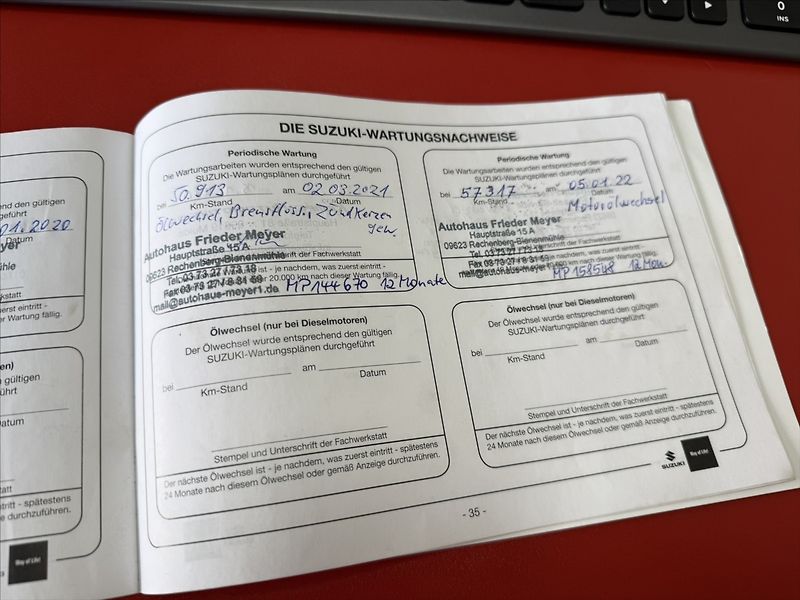 INS
DIE SUZUKI-WARTUNGSNACHWEISE
Periodische Wartung
Die Wartungsarbeiten wurden entsprechend den gültigen
SUZUKI-Wartungsplänen durchgeführt
bei 50.913 am 02.03.2021
Km-Stand Datum
Ölwechsel, Bremsflüss., Zündkerzen
gew.
Autohaus Frieder Meyer
Hauptstraße 15 A
09623 Rechenberg-Bienenmühle
Tel. 03 73 27 / 73 18
Fax 03 73 27 / 8 31 59
mail@autohaus-meyer1.de MP144670 12 Monate
Periodische Wartung
Die Wartungsarbeiten wurden entsprechend den gültigen
SUZUKI-Wartungsplänen durchgeführt
bei 57317 am 05.01.22
Km-Stand Datum
Motorölwechsel
Autohaus Frieder Meyer
Hauptstraße 15 A
09623 Rechenberg-Bienenmühle
MP158548 12 Mon.
Ölwechsel (nur bei Dieselmotoren)
Der Ölwechsel wurde entsprechend den gültigen
SUZUKI-Wartungsplänen durchgeführt
bei am
Km-Stand Datum
Stempel und Unterschrift der Fachwerkstatt
Der nächste Ölwechsel ist - je nachdem, was zuerst eintritt - spätestens
24 Monate nach diesem Ölwechsel oder gemäß Anzeige durchzuführen.
Ölwechsel (nur bei Dieselmotoren)
Der Ölwechsel wurde entsprechend den gültigen
SUZUKI-Wartungsplänen durchgeführt
bei am
Km-Stand Datum
Stempel und Unterschrift der Fachwerkstatt
Der nächste Ölwechsel ist - je nachdem, was zuerst eintritt - spätestens
24 Monate nach diesem Ölwechsel oder gemäß Anzeige durchzuführen.
SUZUKI
Way of Life!
- 35 -